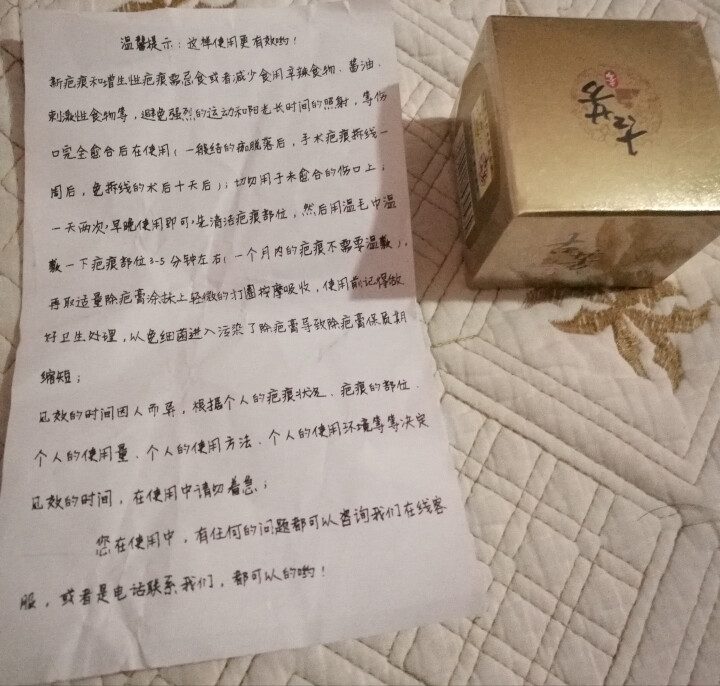 温馨提示：这样使用更有效哟！
新疤痕和增生性疤痕需忌食或者减少食用辛辣食物、酱油、
刺激性食物等，避免强烈的运动和阳光长时间的照射，等伤
口完全愈合后在使用（一般结的痂脱落后，手术疤痕拆线一
周后，免拆线的术后十天后）；切切用于未愈合的伤口上；
一天两次，早晚使用即可，先清洁疤痕部位，然后用温毛巾温
敷一下疤痕部位3-5分钟左右（一个月内的疤痕不需要温敷），
再取适量除疤膏涂抹上轻微的打圈按摩吸收，使用前记得做
好卫生处理，以免细菌进入污染了除疤膏导致除疤膏保质期
缩短；
见效的时间因人而异，根据个人的疤痕状况、疤痕的部位、
个人的使用量、个人的使用方法、个人的使用环境等等决定
见效的时间，在使用中请切着急；
您在使用中，有任何的问题都可以咨询我们在线客
服，或者是电话联系我们，都可以的哟！